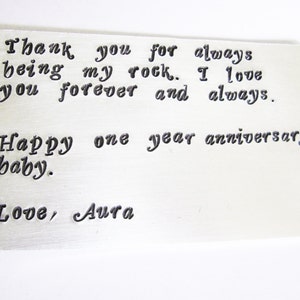 Thank you for always
being my rock. I love
you forever and always.
Happy one year anniversary
baby.
Love, Aura